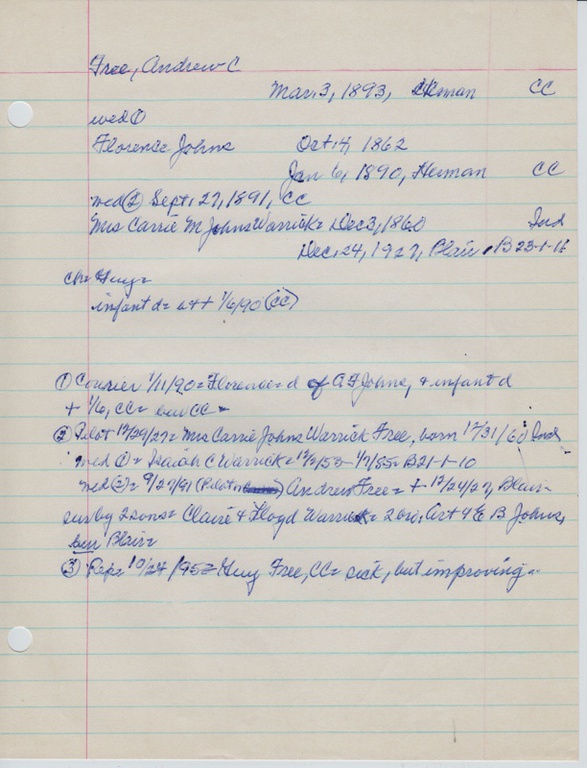 Free, Andrew C
Mar. 3, 1893, Herman CC
wed ①
Florence Johns Oct 14, 1862
Jan 6, 1890, Herman CC
wed ② Sept. 27, 1891, CC
Mrs Carrie M Johns Warrick = Dec 3, 1860 Ind
Dec. 24, 1927, Blair, B 23-1-16
ch = Guy =
infant d = at + 1/6/90 (CC)
① Courier 1/11/90 = Florence = d of A F Johns, & infant d
+ 1/6, CC = bur CC =
② Pilot 12/29/27 = Mrs Carrie Johns Warrick Free, born 12/31/60 Ind
wed ① = Isaiah C Warrick = 12/2/53 - 1/7/85 = B 21-1-10
wed ② = 9/27/91 (Pilot) Andrew Free = + 12/24/27, Blair =
sur by 2 sons = Claire & Floyd Warrick = 2 bro, Art & E B Johns,
bur Blair =
③ Rep = 10/24/1952 = Guy Free, CC = sick, but improving =